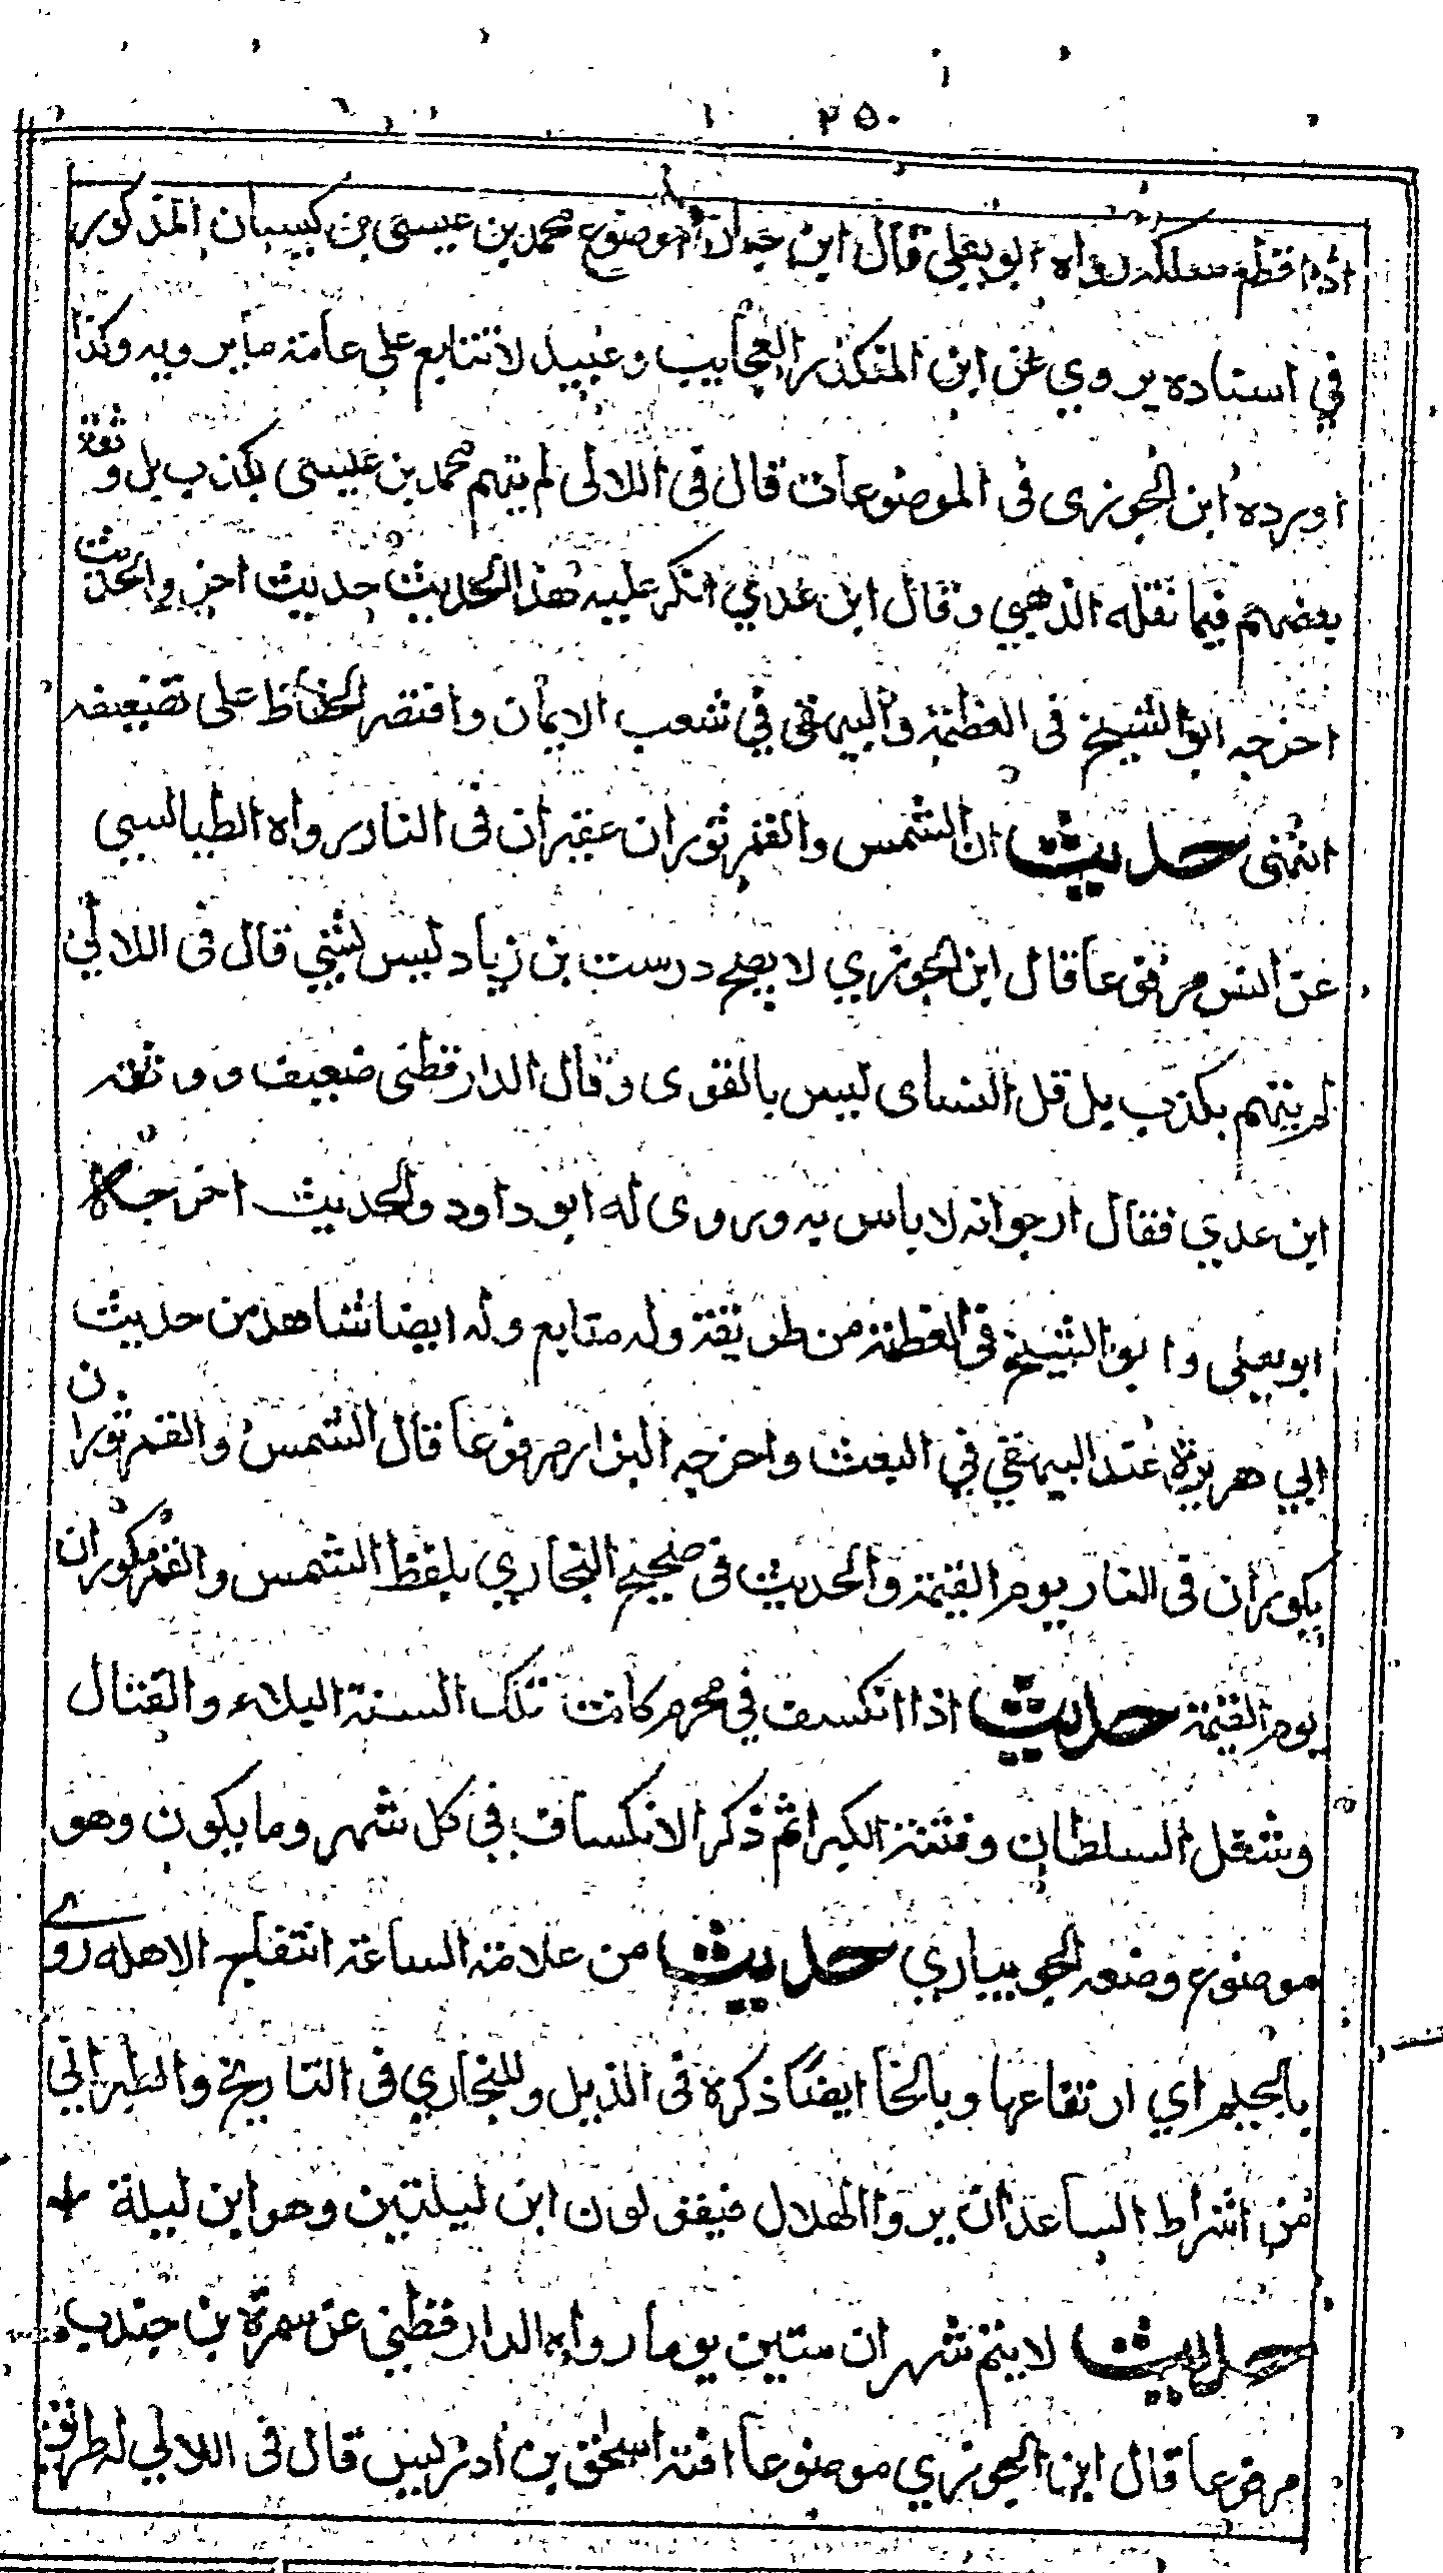 ٢٥٠
اذا قطع سلكه رواه ابو يعلى قال ابن حبان موضوع محمد بن عيسى بن كيسان المذكور
في اسناده يروي عن ابن المنكدر العجايب وعبيد لا يتابع على عامة ما يرويه وكذا
اورده ابن الجوزى فى الموضوعات قال فى اللالى لم يتهم محمد بن عيسى بكذب بل وثقة
بعضهم فيما نقله الذهبي وقال ابن عدي انكر عليه هذا الحديث حديث اخر والحديث
اخرجه ابو الشيخ فى العظمة والبيهقى في شعب الايمان واقتصر الحفاظ على تضعيفه
انتهى حديث ان الشمس والقمر ثوران عقيران فى النار رواه الطيالسي
عن انس مرفوعا قال ابن الجوزي لا يصح درست بن زياد ليس بشي قال فى اللالي
لم يتهم بكذب بل قل النساى ليس بالقوى وقال الدارقطنى ضعيف ووثقه
ابن عدي فقال ارجوانه لا باس به وروى له ابو داود والحديث اخرجه
ابو يعلى وابو الشيخ فى العظمة من طريقة وله متابع وله ايضا شاهد من حديث
ابي هريرة عند البيهقي في البعث واخرجه البزار مرفوعا قال الشمس والقمر ثوران
يكوران فى النار يوم القيمة والحديث فى صحيح البخاري بلفظ الشمس والقمر مكوران
يوم القيمة حديث اذا انكسف في محرم كانت تلك السنة البلاء والقتال
وشغل السلطان وفتنة الكبرا ثم ذكر الانكساف في كل شهر وما يكون وهو
موضوع وضعه الجويباري حديث من علامة الساعة انتفاج الاهله روي
بالجيم اي ارتفاعها وبالخا ايضا ذكره فى الذيل وللبخاري فى التاريخ والطبراني
من اشراط الساعة ان يروا الهلال فيقولون ابن ليلتين وهو ابن ليلة
حديث لا يتم شهران ستين يوما رواه الدارقطني عن سمرة بن جندب
مرفوعا قال ابن الجوزي موضوعا افته اسحق بن ادريس قال فى اللالي له طرق